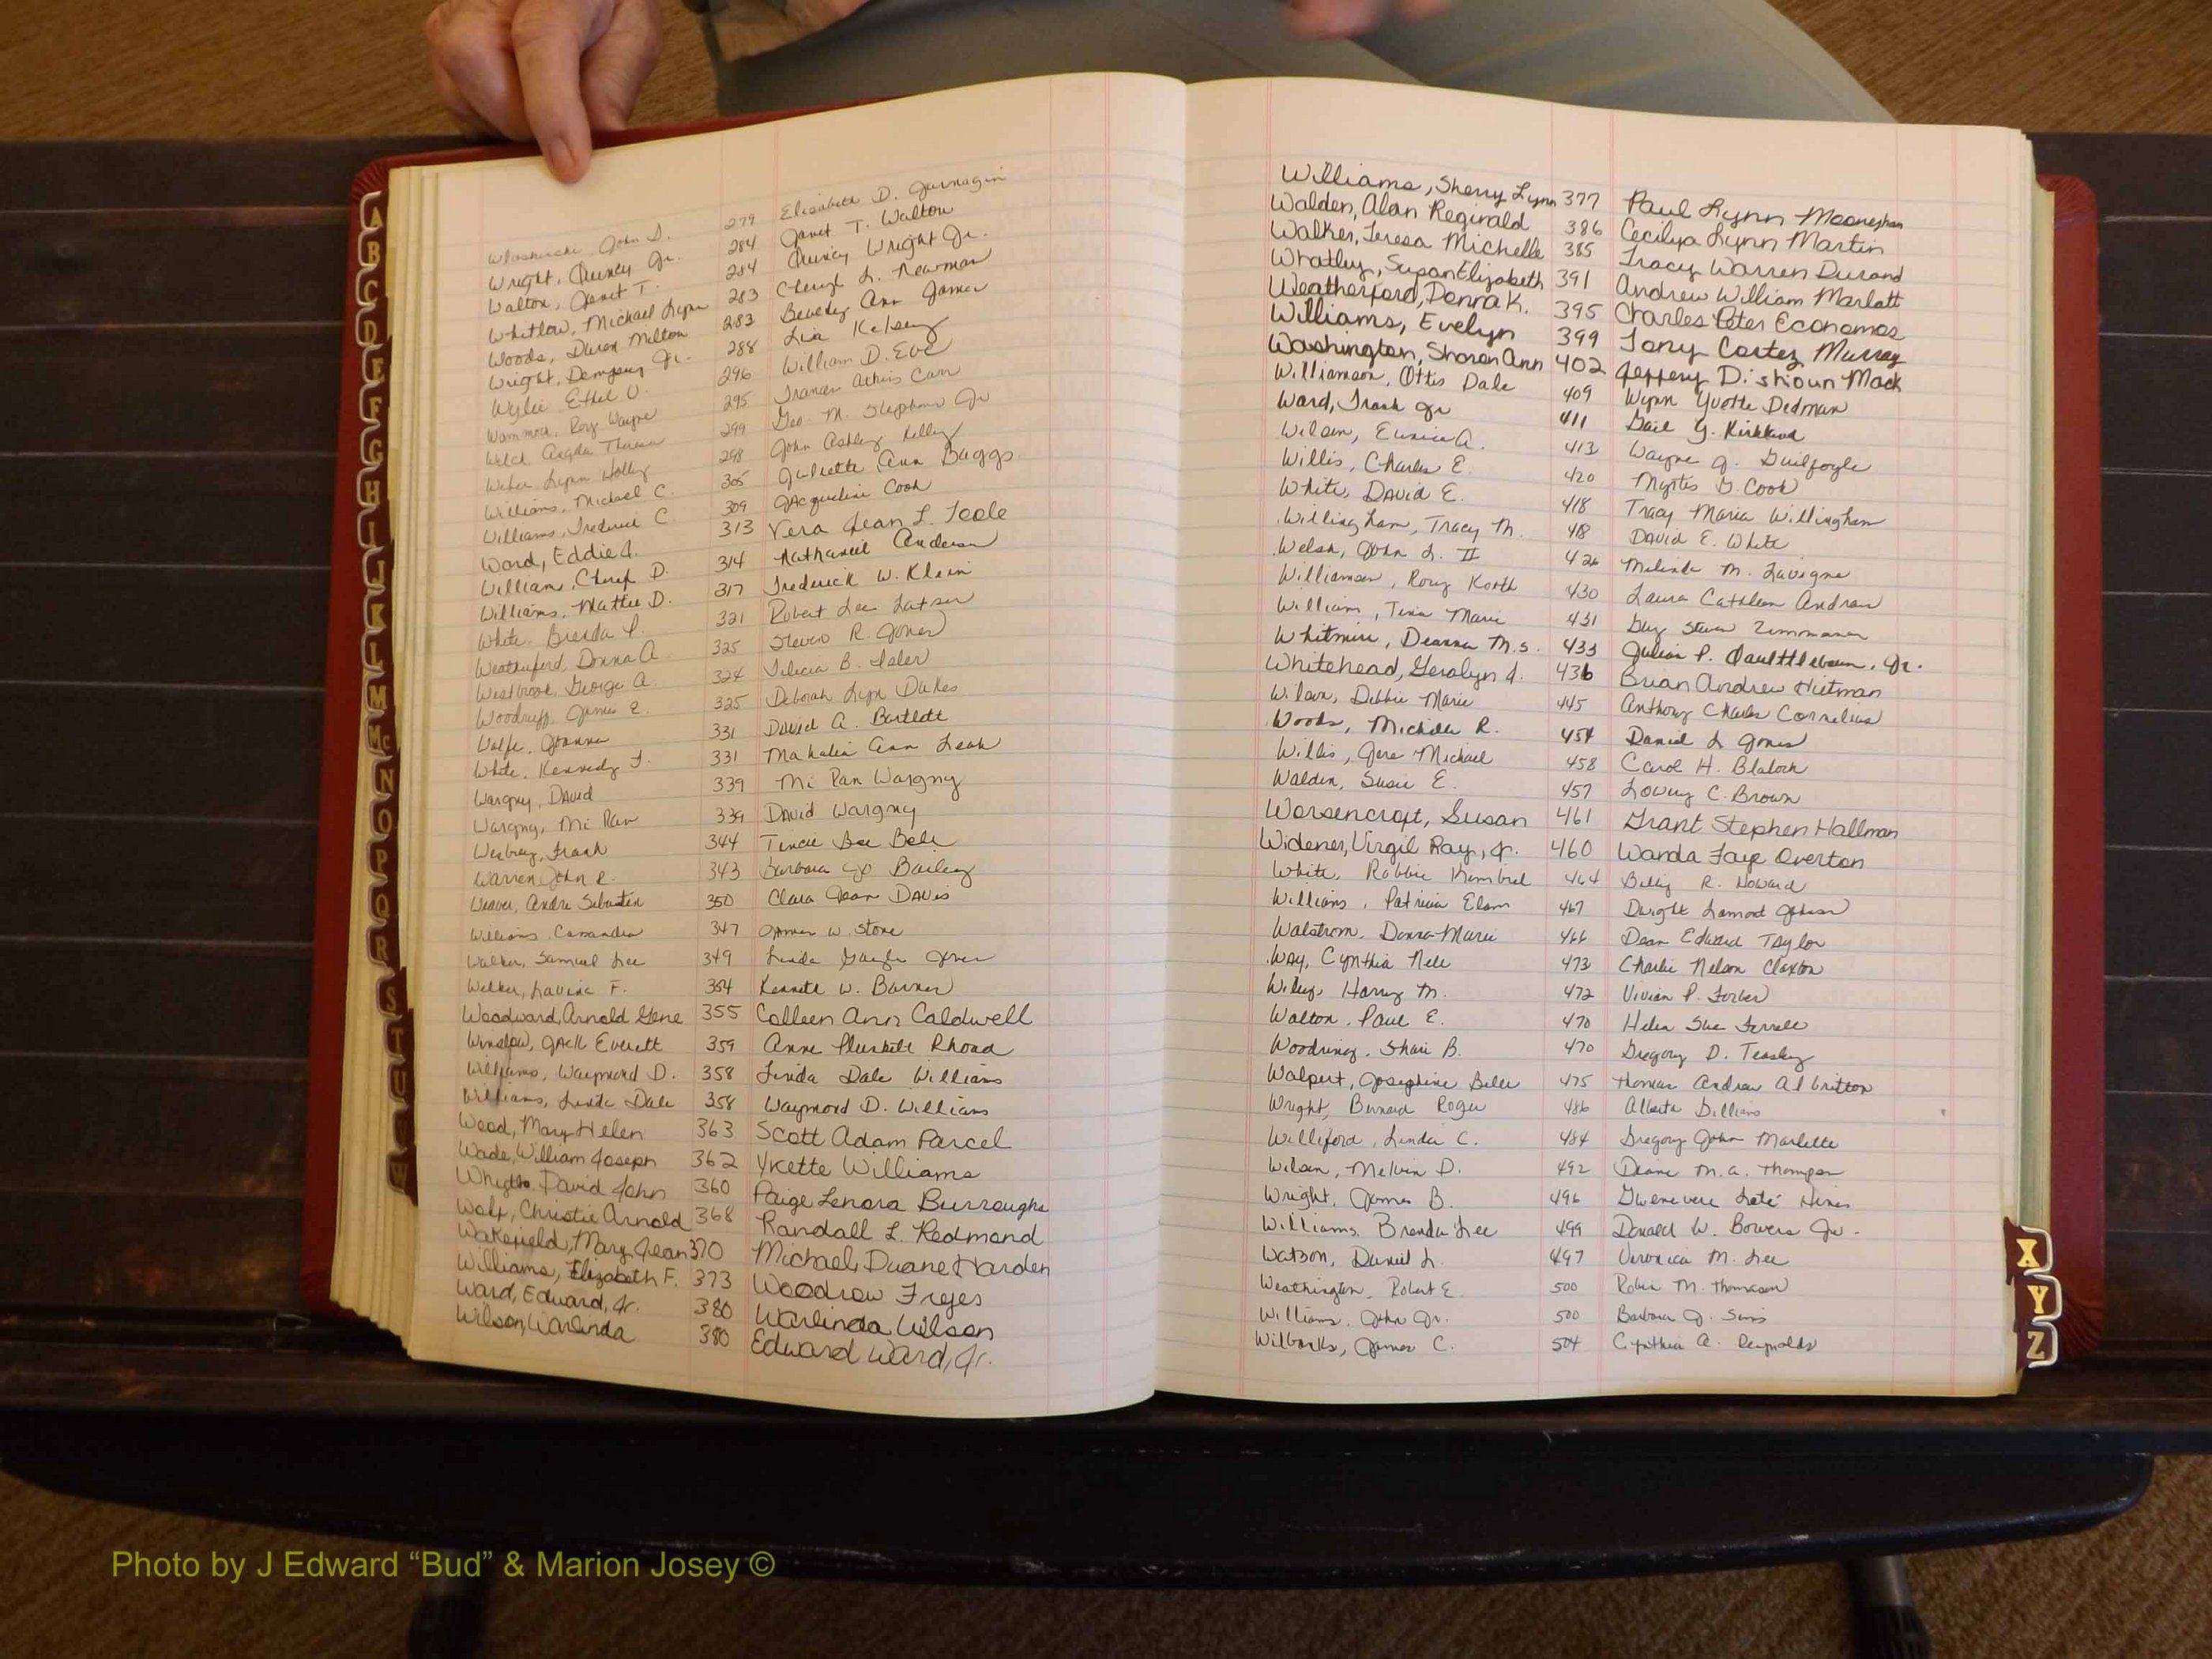 John S. 279 Elizabeth D. Jarnagin
Wright, Quincy Jr. 284 Janet T. Walton
Walton, Janet T. 284 Quincy Wright Jr.
Whitlow, Michael Lynn 283 Cheryl L. Newman
Woods, Duren Milton 283 Beverly Ann James
Wright, Dempsey Jr. 288 Lia Kelsey
Wylie Ethel O. 296 William D. Eve
Wammock, Roy Wayne 295 Frances Athins Carr
Welch Angela Theresa 299 Geo. M. Stephens Jr
Weber Lynn Holly 298 John Ashley Kelley
Williams, Michael C. 305 Juliette Ann Baggs
Williams, Frederick C. 309 Jacqueline Cook
Ward, Eddie J. 313 Vera Jean L. Toole
William, Cheryl D. 314 Nathaniel Anderson
Williams, Mattie D. 317 Frederick W. Klein
White, Brenda P. 321 Robert Lee
Weatherford, Donna A. 325 Steven R. Jones
Westbrook, George A. 324 Felicia B. Isler
Woodruff, James E. 325 Deborah Lynn Dukes
Wolfe, Joanna 331 David A. Bartlett
White, Kennedy F. 331 Mahalia Ann Leak
Wargny, David 339 Mi Ran Wargny
Wargny, Mi Ran 339 David Wargny
Frank 344 Bell
Warren John R. 343 Barbara Jo Bailey
Weaver, Andre Sebastin 350 Clara Jean Davis
Williams Cassandra 347 James W. Stone
Walker, Samuel Lee 349 Linda Gayle Jones
Welker, Lavina F. 354 Kenneth W. Barnes
Woodward, Arnold Gene 355 Colleen Ann Caldwell
Winslow, Jack Everett 359 Anne Plunkett Rhoad
Williams, Waymond D. 358 Linda Dale Williams
Williams, Linda Dale 358 Waymond D. Williams
Wood, Mary Helen 363 Scott Adam Parcel
Wade, William Joseph 362 Yvette Williams
David John 360 Paige Lenora Burroughs
Wolf, Christie Arnold 368 Randall L. Redmond
Wakefield, Mary Jean 370 Michael Duane Harden
Williams, Elizabeth F. 373 Woodrow Freyes
Ward, Edward, Jr. 380 Warlinda Wilson
Wilson, Warlinda 380 Edward Ward, Jr.
Williams, Sherry Lynn 377 Paul Lynn Mooneyhan
Walden, Alan Reginald 386 Cecilya Lynn Martin
Walker, Teresa Michelle 385 Tracy Warren Durand
Whatley, Susan Elizabeth 391 Andrew William Marlatt
Weatherford, Donna K. 395 Charles Peter Economos
Williams, Evelyn 399 Tony Cortez Murray
Washington, Sharon Ann 402 Jeffery D.'shioun Mack
Williamson, Ottis Dale 409 Wynn Yvotte Dedman
Ward, Frank Jr 411 Gail Y. Kirkland
Wilson, Eunice A. 413 Wayne J. Guilfoyle
Willis, Charles E. 420 Myrtis G. Cook
White, David E. 418 Tracy Maria Willingham
Willingham, Tracy M. 418 David E. White
Welsh, John L. II 426 Melinda M. Lavigne
Williamson, Rory Korth 430 Laura Cathleen Andrew
Williams, Tina Marie 431 Guy Steven Zimmerman
Whitmire, Deanna M.S. 433 Julian P. Quattlebaum, Jr.
Whitehead, Geralyn J. 436 Brian Andrew Hutman
Wilson, Debbie Marie 445 Anthony Charles Cornelius
Woods, Michelle R. 454 Daniel L Jones
Willis, Gene Michael 458 Carol H. Blalock
Walden, Susie E. 457 Lowery C. Brown
Worsencroft, Susan 461 Grant Stephen Hallman
Widener, Virgil Ray, Jr. 460 Wanda Faye Overton
White, Robbie Kimbrel 464 Billy R. Howard
Williams, Patricia Elam 467 Dwight Lamont Johnson
Walstrom, Donna Marie 466 Dean Edward Taylor
Way, Cynthia Nell 473 Charlie Nelson Claxton
Wiley, Harry M. 472 Vivian P. Forbes
Walton, Paul E. 470 Helen Sue Ferrell
Woodring, Shari B. 470 Gregory D. Teasley
Walpert, Josephine Belle 475 Thomas Andrew Albritton
Wright, Bernard Roger 486 Alberta Gillians
Williford, Linda C. 484 Gregory John Marlette
Wilson, Melvin D. 492 Diane M. A. Thompson
Wright, James B. 496 Gwenevere Laté Hines
Williams, Brenda Lee 499 Donald W. Bowers Jr.
Watson, Daniel L. 497 Veronica M. Lee
Weathington, Robert E. 500 Robin M. Thomason
Williams, John Jr. 500 Barbara J. Sims
Wilbanks, James C. 504 Cynthia A. Reynolds
A
B
C
D
E
F
G
H
I
J
K
L
M
Mc
N
O
P
Q
R
S
T
U
V
W
X
Y
Z
Photo by J Edward “Bud” & Marion Josey ©